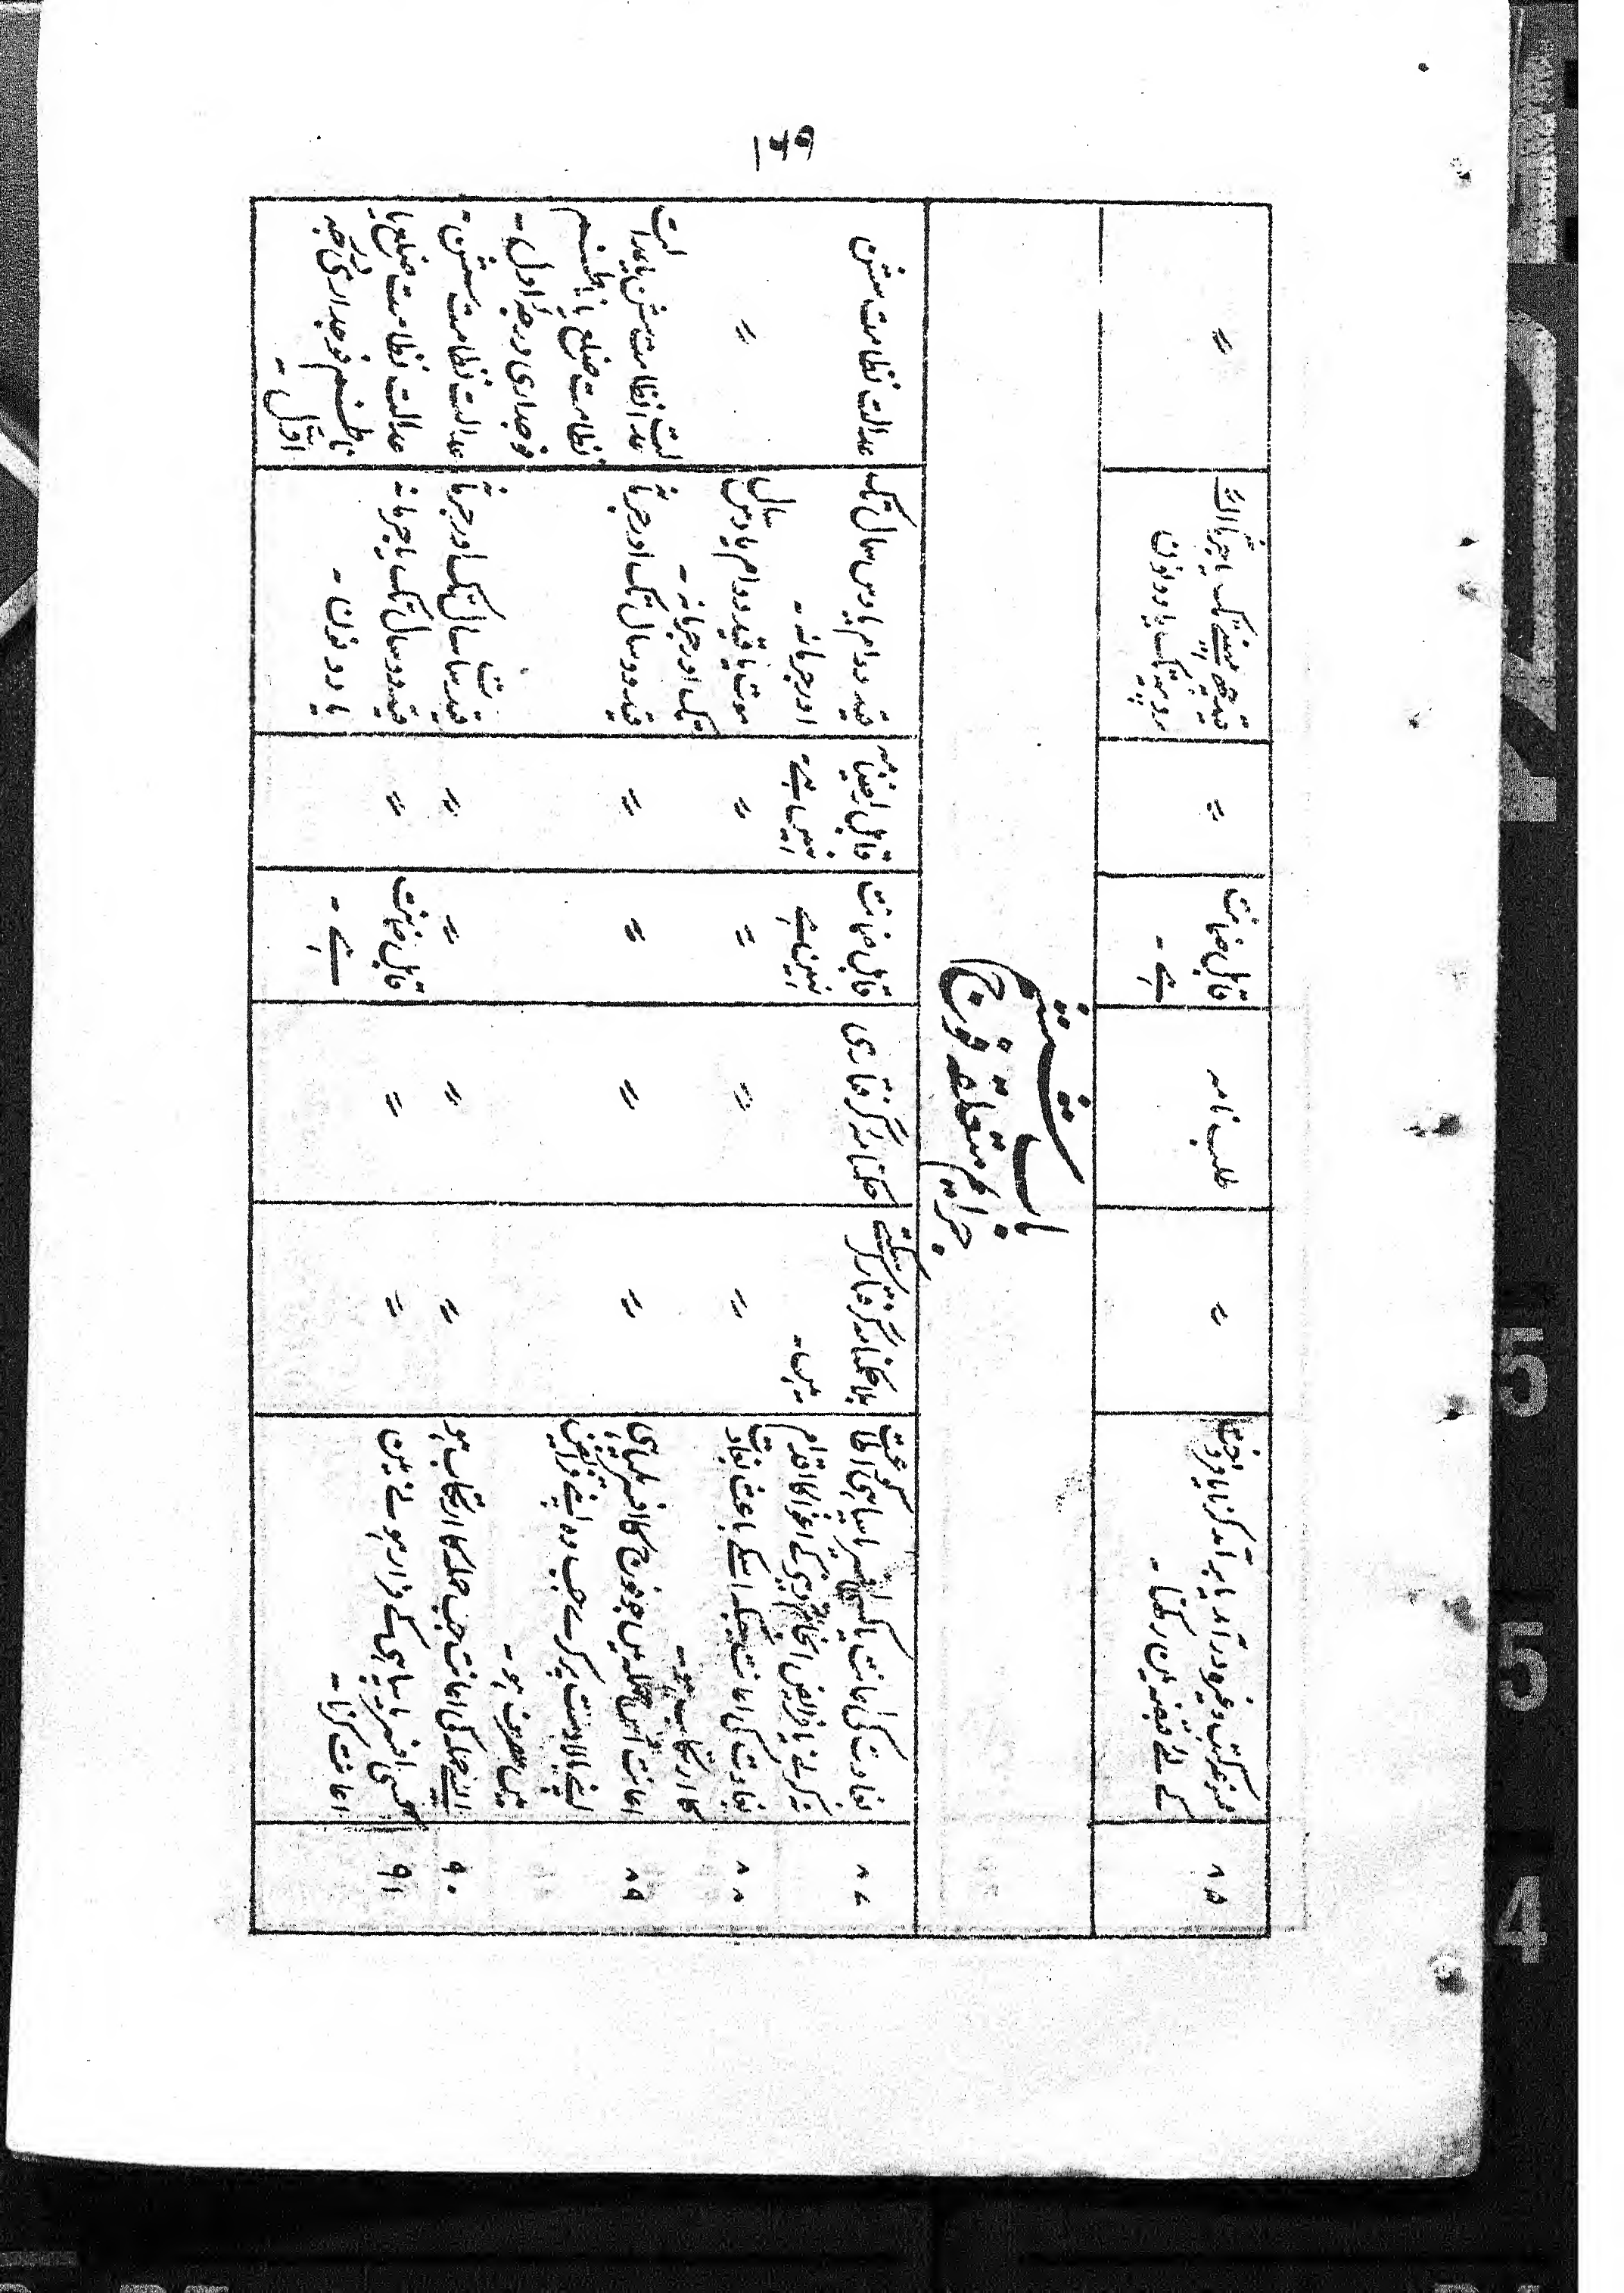 ۱۶۹
۸۵
غیر ملکی سکہ وغیرہ درآمد یا برآمد کرنا یا فروخت
کے لئے قبضہ میں رکھنا -
〃
طلب نامہ
قابل ضمانت
ہے -
〃
قید چھ مہینے تک یا جرمانہ
روپیہ تک یا دونوں
〃
باب ششم
جرایم متعلقہ فوج
۸۷
بغاوت کی اعانت یا کسی افسر یا سپاہی کو
نہ کرنے یا فرایض انجام نہ دینے کے اغوا کا اقدام
بلا حکمنامہ گرفتار کر سکتے
ہیں -
حکمنامہ گرفتاری
قابل ضمانت
نہیں ہے
قابل راضینامہ
نہیں ہے -
قید دوام یا دس سال تک
اور جرمانہ -
عدالت نظامت سشن
۸۸
بغاوت کی اعانت جبکہ اسکے باعث بغاوت
کا ارتکاب ہو -
〃
〃
〃
〃
موت یا قید دوام یا دس سال
تک اور جرمانہ -
〃
۸۹
اعانت اُس حملہ میں جو فوج کا افسر یا سپاہی
اپنے بالادست پر کرے جب وہ اپنے فرایض
میں مصروف ہو -
〃
〃
〃
〃
قید دو سال تک اور جرمانہ
عدالت نظامت سشن یا عدالت
نظامت ضلع یا ناظم
فوجداری درجہ اول -
۹۰
ایسے حملہ کی اعانت جب حملہ کا ارتکاب ہو
〃
〃
〃
〃
قید سات سال تک اور جرمانہ
عدالت نظامت سشن -
۹۱
کسی افسر یا سپاہی کے فرار ہونے میں
اعانت کرنا -
〃
〃
قابل ضمانت
ہے -
〃
قید دو سال تک یا جرمانہ
یا دونوں -
عدالت نظامت ضلع یا
ناظم فوجداری درجہ
اول -